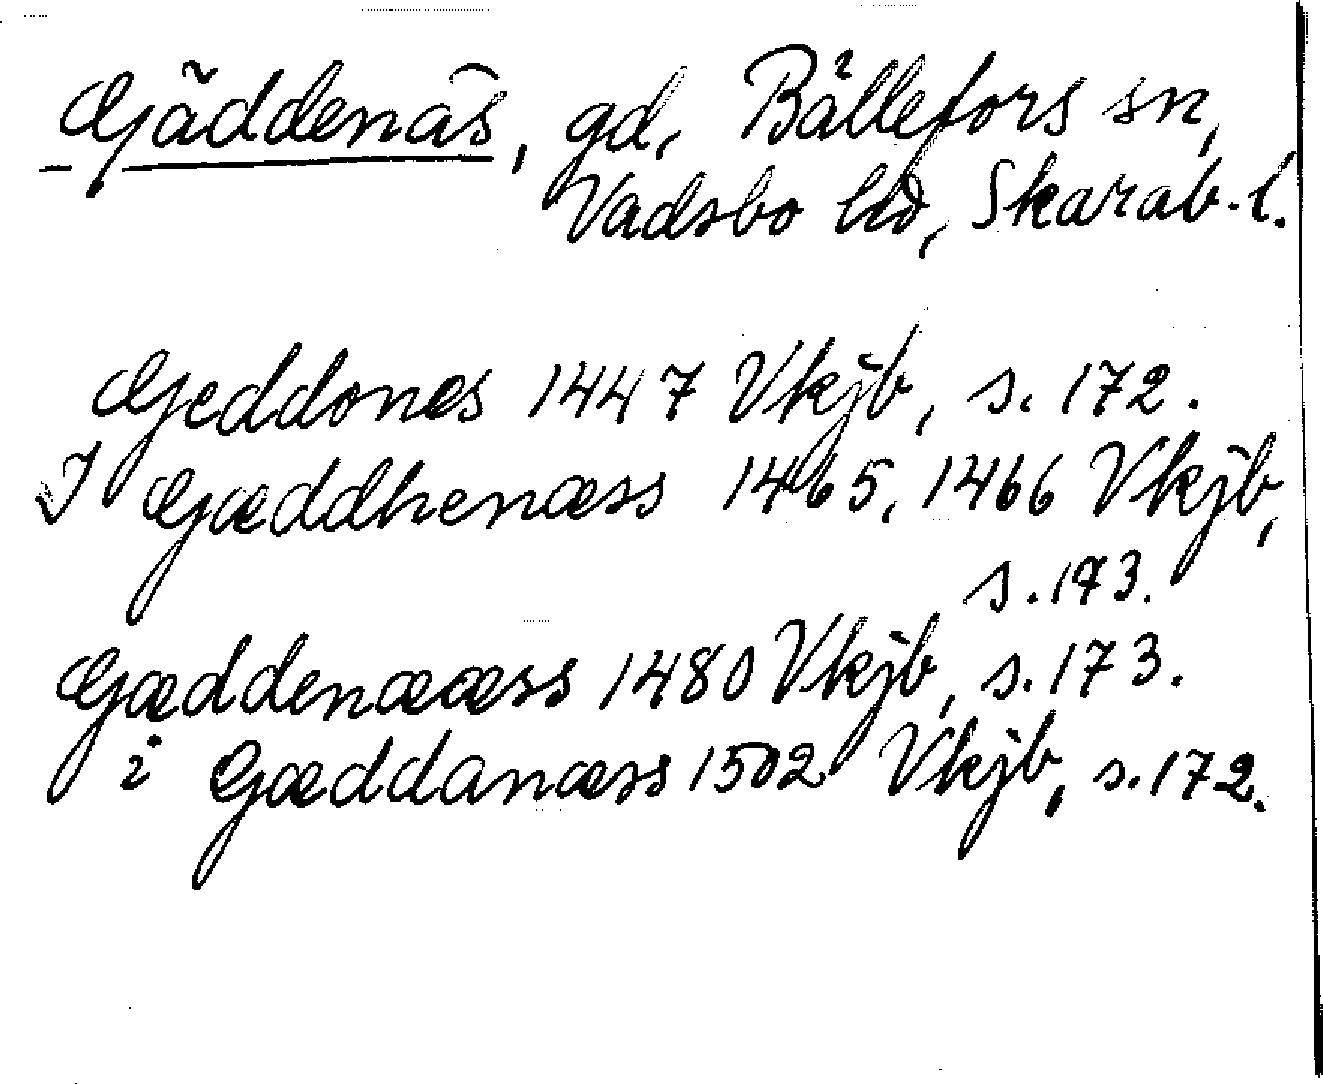 Gäddenäs, gd, Bällefors sn,
Vadsbo hd, Skarab. l.
Geddones 1447 Vkjb, s. 172.
J Gæddhenæss 1465, 1466 Vkjb,
s. 173.
Gæddenææss 1480 Vkjb, s. 173.
i Gæddanæss 1502 Vkjb, s. 172.